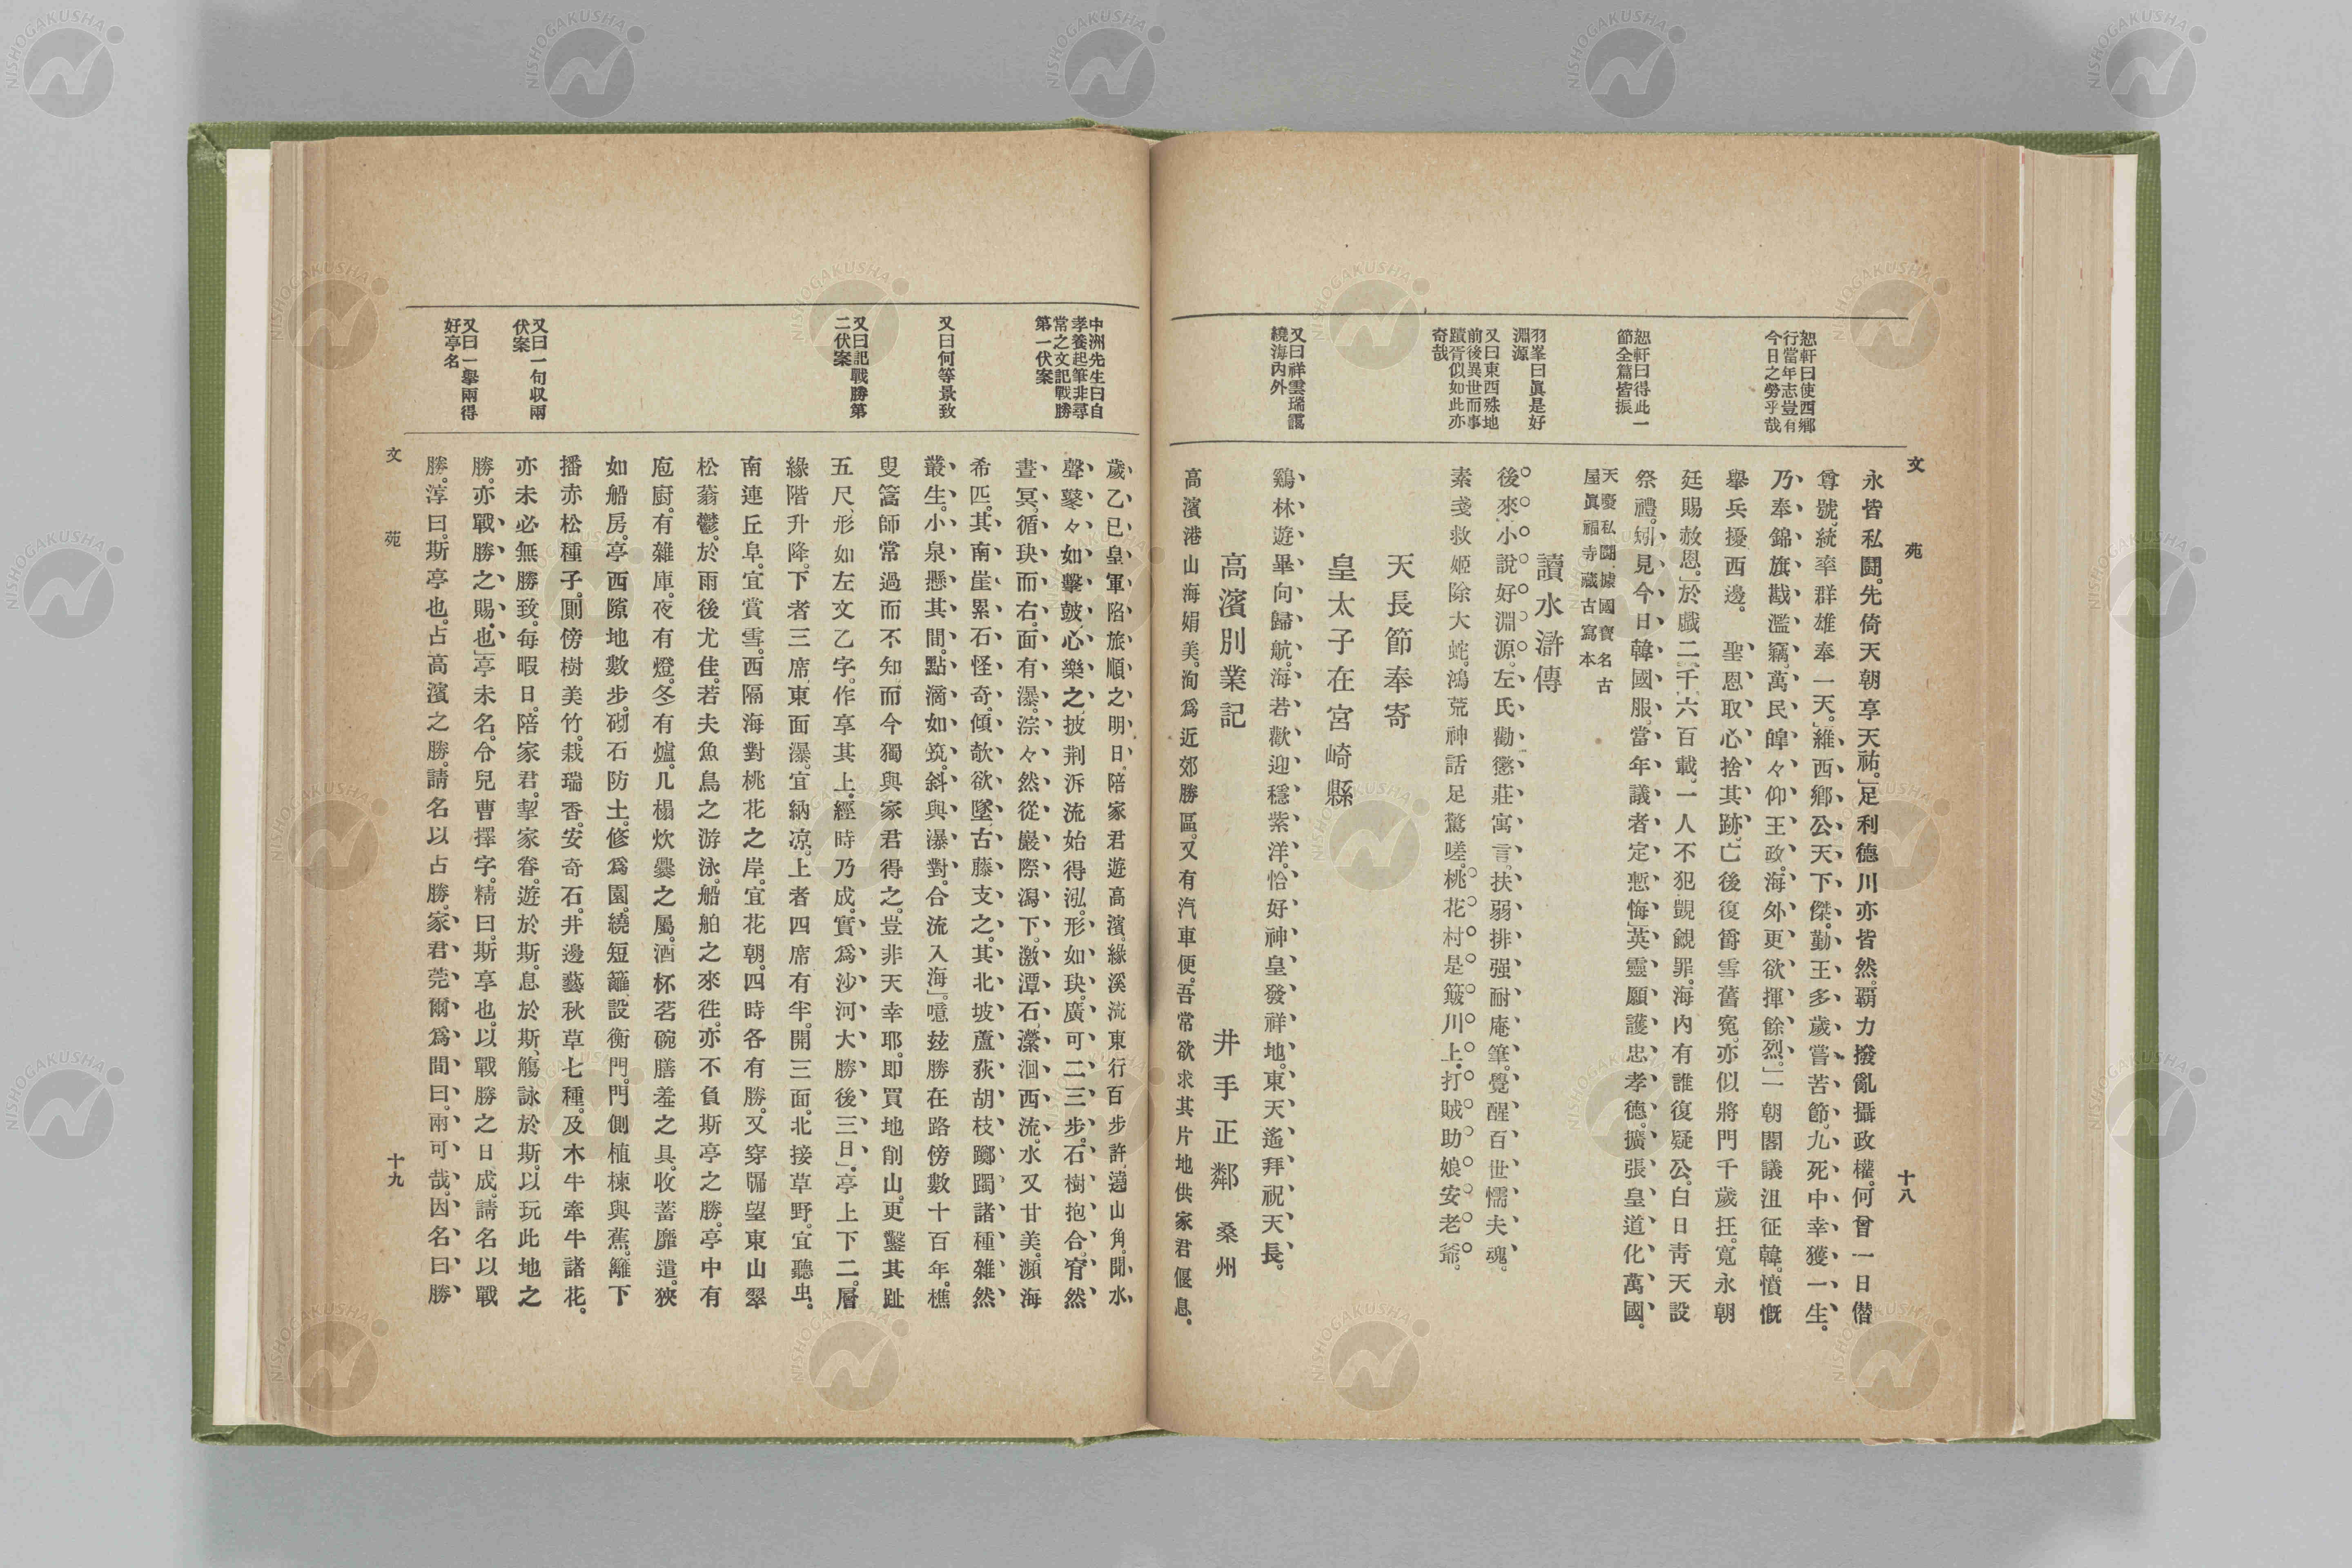 文苑
十八
恕軒曰使西鄉
行當年志豈有
今日之勞乎哉
恕軒曰得此一
節全篇皆振
羽峯曰眞是好
淵源
又曰東西殊地
前後異世而事
蹟胥似如此亦
奇哉
又曰祥雲瑞靄
繞海內外
永皆私鬪。先倚天朝享天祐。」足利德川亦皆然。覇力撥亂攝政權。何曾一日僭
尊號。統率群雄奉一天。」維西鄉公天下傑。勤王多歲嘗苦節。九死中幸獲一生。
乃奉錦旗戡濫竊。萬民皥々仰王政。海外更欲揮餘烈。」一朝閣議沮征韓。憤慨
舉兵擾西邊。聖恩取心捨其跡。亡後復爵雪舊冤。亦似將門千歲抂。寬永朝
廷賜赦恩。」於戲二千六百載。一人不犯覬覦罪。海內有誰復疑公。白日靑天設
祭禮。矧見今日韓國服。當年議者定慙悔。」英靈願護忠孝德。擴張皇道化萬國。
天慶私鬪、據國寶名古
屋眞福寺藏古寫本
讀水滸傳
後來小說好淵源。左氏勸懲莊寓言。扶弱排强耐庵筆。覺醒百世懦夫魂。
素戔救姬除大蛇。鴻荒神話足驚嗟。桃花村是簸川上。打賊助娘安老爺。
天長節奉寄
皇太子在宮崎縣
鷄林遊畢向歸航。海若歡迎穩紫洋。恰好神皇發祥地。東天遙拜祝天長。
高濱別業記
井手正鄰 桑州
高濱港山海娟美。洵爲近郊勝區。又有汽車便。吾常欲求其片地供家君偃息。
中洲先生曰自
孝養起筆非尋
常之文記戰勝
第一伏案
又曰何等景致
又曰記戰勝第
二伏案
又曰一句収兩
伏案
又曰一擧兩得
好亭名
歲乙巳皇軍陷旅順之明日。陪家君遊高濱。緣溪流東行百步許。遶山角。聞水
聲鼕々如擊皷。心樂之。披荆泝流始得泓。形如玦。廣可二三步。石樹抱合。窅然
晝冥。循玦而右。面有瀑。淙々然從巖際瀉下。激潭石。瀠洄西流。水又甘美。瀕海
希匹。其南崖累石怪奇。傾欹欲墜。古藤支之。其北坡蘆荻胡枝躑躅諸種雜然
叢生。小泉懸其間。點滴如筑。斜與瀑對。合流入海。」噫玆勝在路傍數十百年。樵
叟篙師常過而不知。而今獨與家君得之。豈非天幸耶。即買地削山。更鑿其趾
五尺、形如左文乙字。作享其上。經時乃成。實爲沙河大勝後三日。」亭上下二層
緣階升降。下者三席、東面瀑。宜納凉。上者四席有半。開三面。北接草野。宜聽虫。
南連丘阜。宜賞雪。西隔海對桃花之岸。宜花朝。四時各有勝。又穿牖望東山翠
松蓊鬱。於雨後尤佳。若夫魚鳥之游泳。船舶之來徃。亦不負斯亭之勝。亭中有
庖厨。有雜庫。夜有燈。冬有爐。几榻炊爨之屬。酒杯茗碗膳羞之具。收蓄靡遺。狹
如船房。亭西隙地數步。砌石防土。修爲園。繞短籬、設衡門。門側植棟與蕉。籬下
播赤松種子。厠傍樹美竹。栽瑞香。安奇石。井邊藝秋草七種。及木牛牽牛諸花。
亦未必無勝致。每暇日。陪家君。挈家眷。遊於斯。息於斯、觴詠於斯。以玩此地之
勝。亦戰勝之賜也」亭未名。令兒曹擇字。精曰。斯享也。以戰勝之日成。請名以戰
勝。淳曰。斯亭也。占高濱之勝。請名以占勝。家君莞爾爲間曰。兩可哉。因名曰勝
文苑
十九